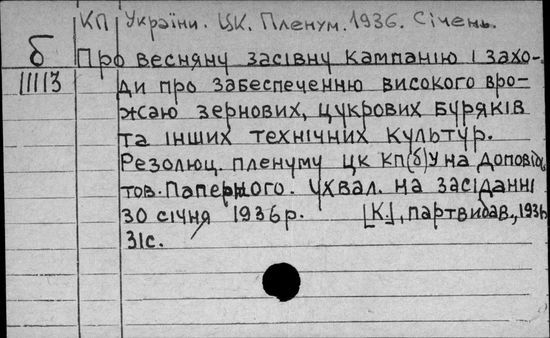 КП України. ЦК. Пленум. 1936. Січень.
б Про весняну засівну кампанію і захо-
11113 ди про забеспеченню високого вро-
жаю зернових, цукрових буряків
та інших технічних культур.
Резолюц. пленуму ЦК КП(б)У на доповідь
тов. Паперного. Ухвал. на засіданні
30 січня 1936 р. [К.], партвидав., 1936
31с.